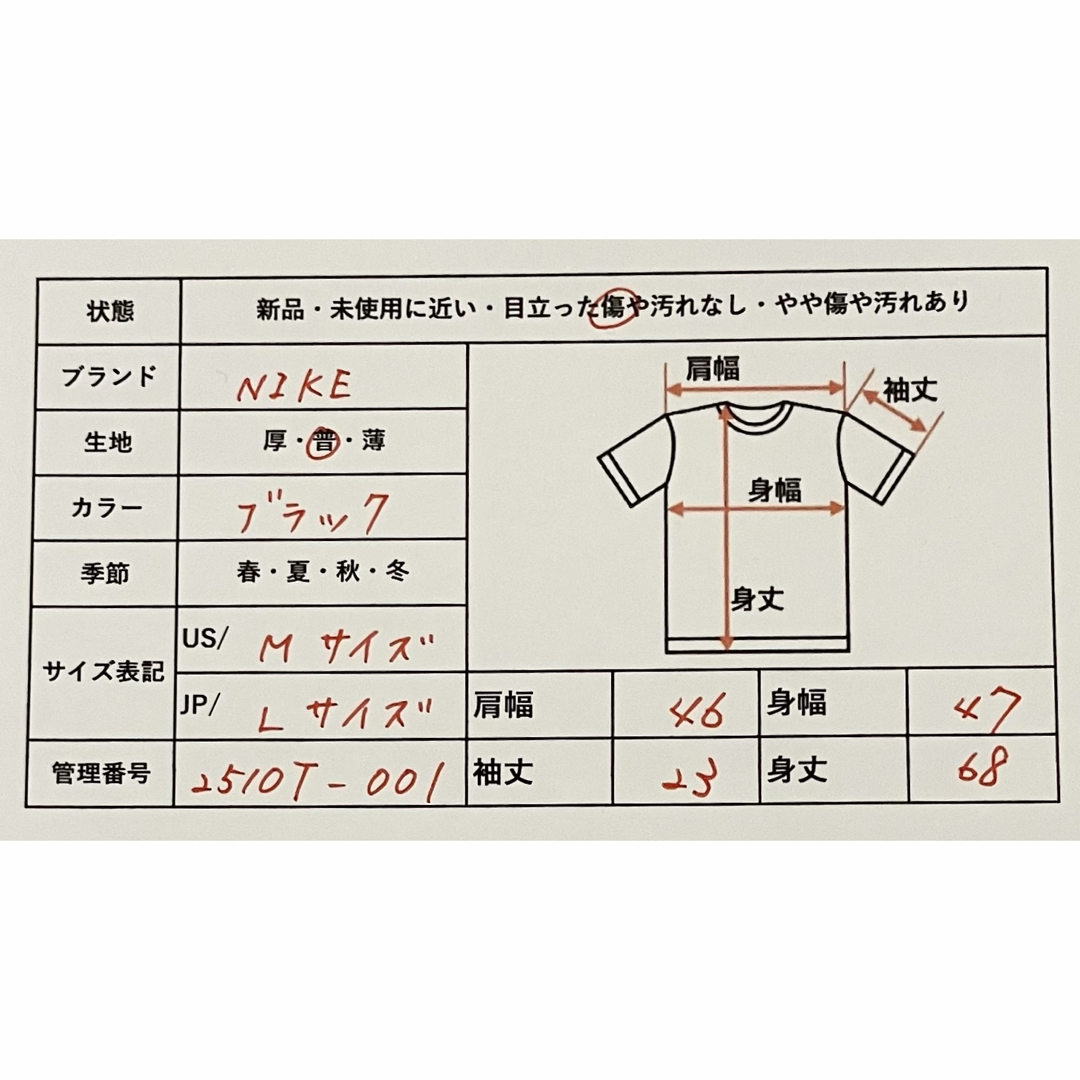 状態 新品・未使用に近い・目立った傷や汚れなし・やや傷や汚れあり
ブランド NIKE
生地 厚・普・薄
カラー ブラック
季節 春・夏・秋・冬
サイズ表記
US/ M サイズ
JP/ L サイズ
管理番号 2510T-001
肩幅
袖丈
身幅
身丈
肩幅 46 身幅 47
袖丈 23 身丈 68